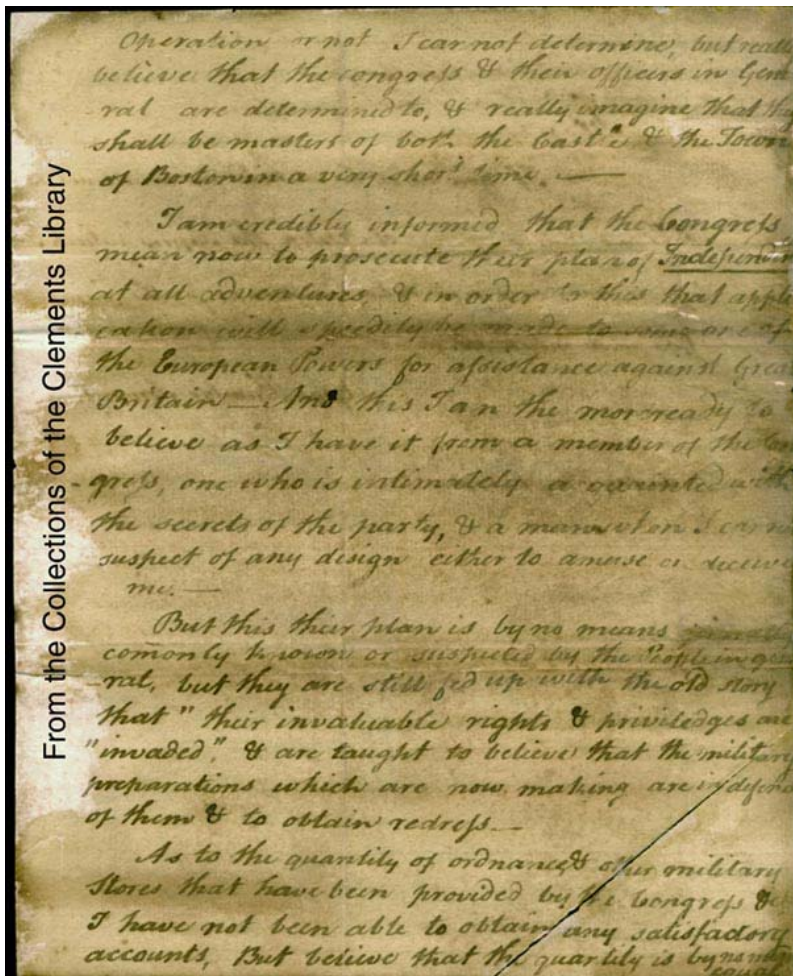 From the Collections of the Clements Library
Operation or not I can not determine, but really
believe that the congress & their officers in Gene
ral are determined to, & really imagine that they
shall be masters of both the Castle & the Town
of Boston in a very short time. —
I am credibly informed that the Congress
mean now to prosecute their plan of Independen
at all adventures, & in order to this that appli
cation will speedily be made to some one of
the European Powers for assistance against Great
Britain — And this I am the more ready to
believe as I have it from a member of the Con
gress, one who is intimately acquainted with
the secrets of the party, & a man whom I cannot
suspect of any design either to amuse or deceive
me. —
But this their plan is by no means
comonly known or suspected by the People in gene
ral, but they are still fed up with the old story
that " their invaluable rights & priviledges are
"invaded", & are taught to believe that the military
preparations which are now making are in defence
of them & to obtain redress —
As to the quantity of ordnance, & other military
Stores that have been provided by the Congress &c
I have not been able to obtain any satisfactory
accounts, But believe that the quantity is by no